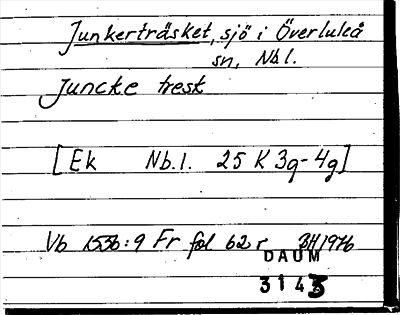 Junkerträsket, sjö i Överluleå
sn, Nb.l.
Juncke tresk
[Ek Nb.l. 25 K 3g-4g]
Vb 1556:9 Fr fol 62 r BH 1976
DAUM
3143